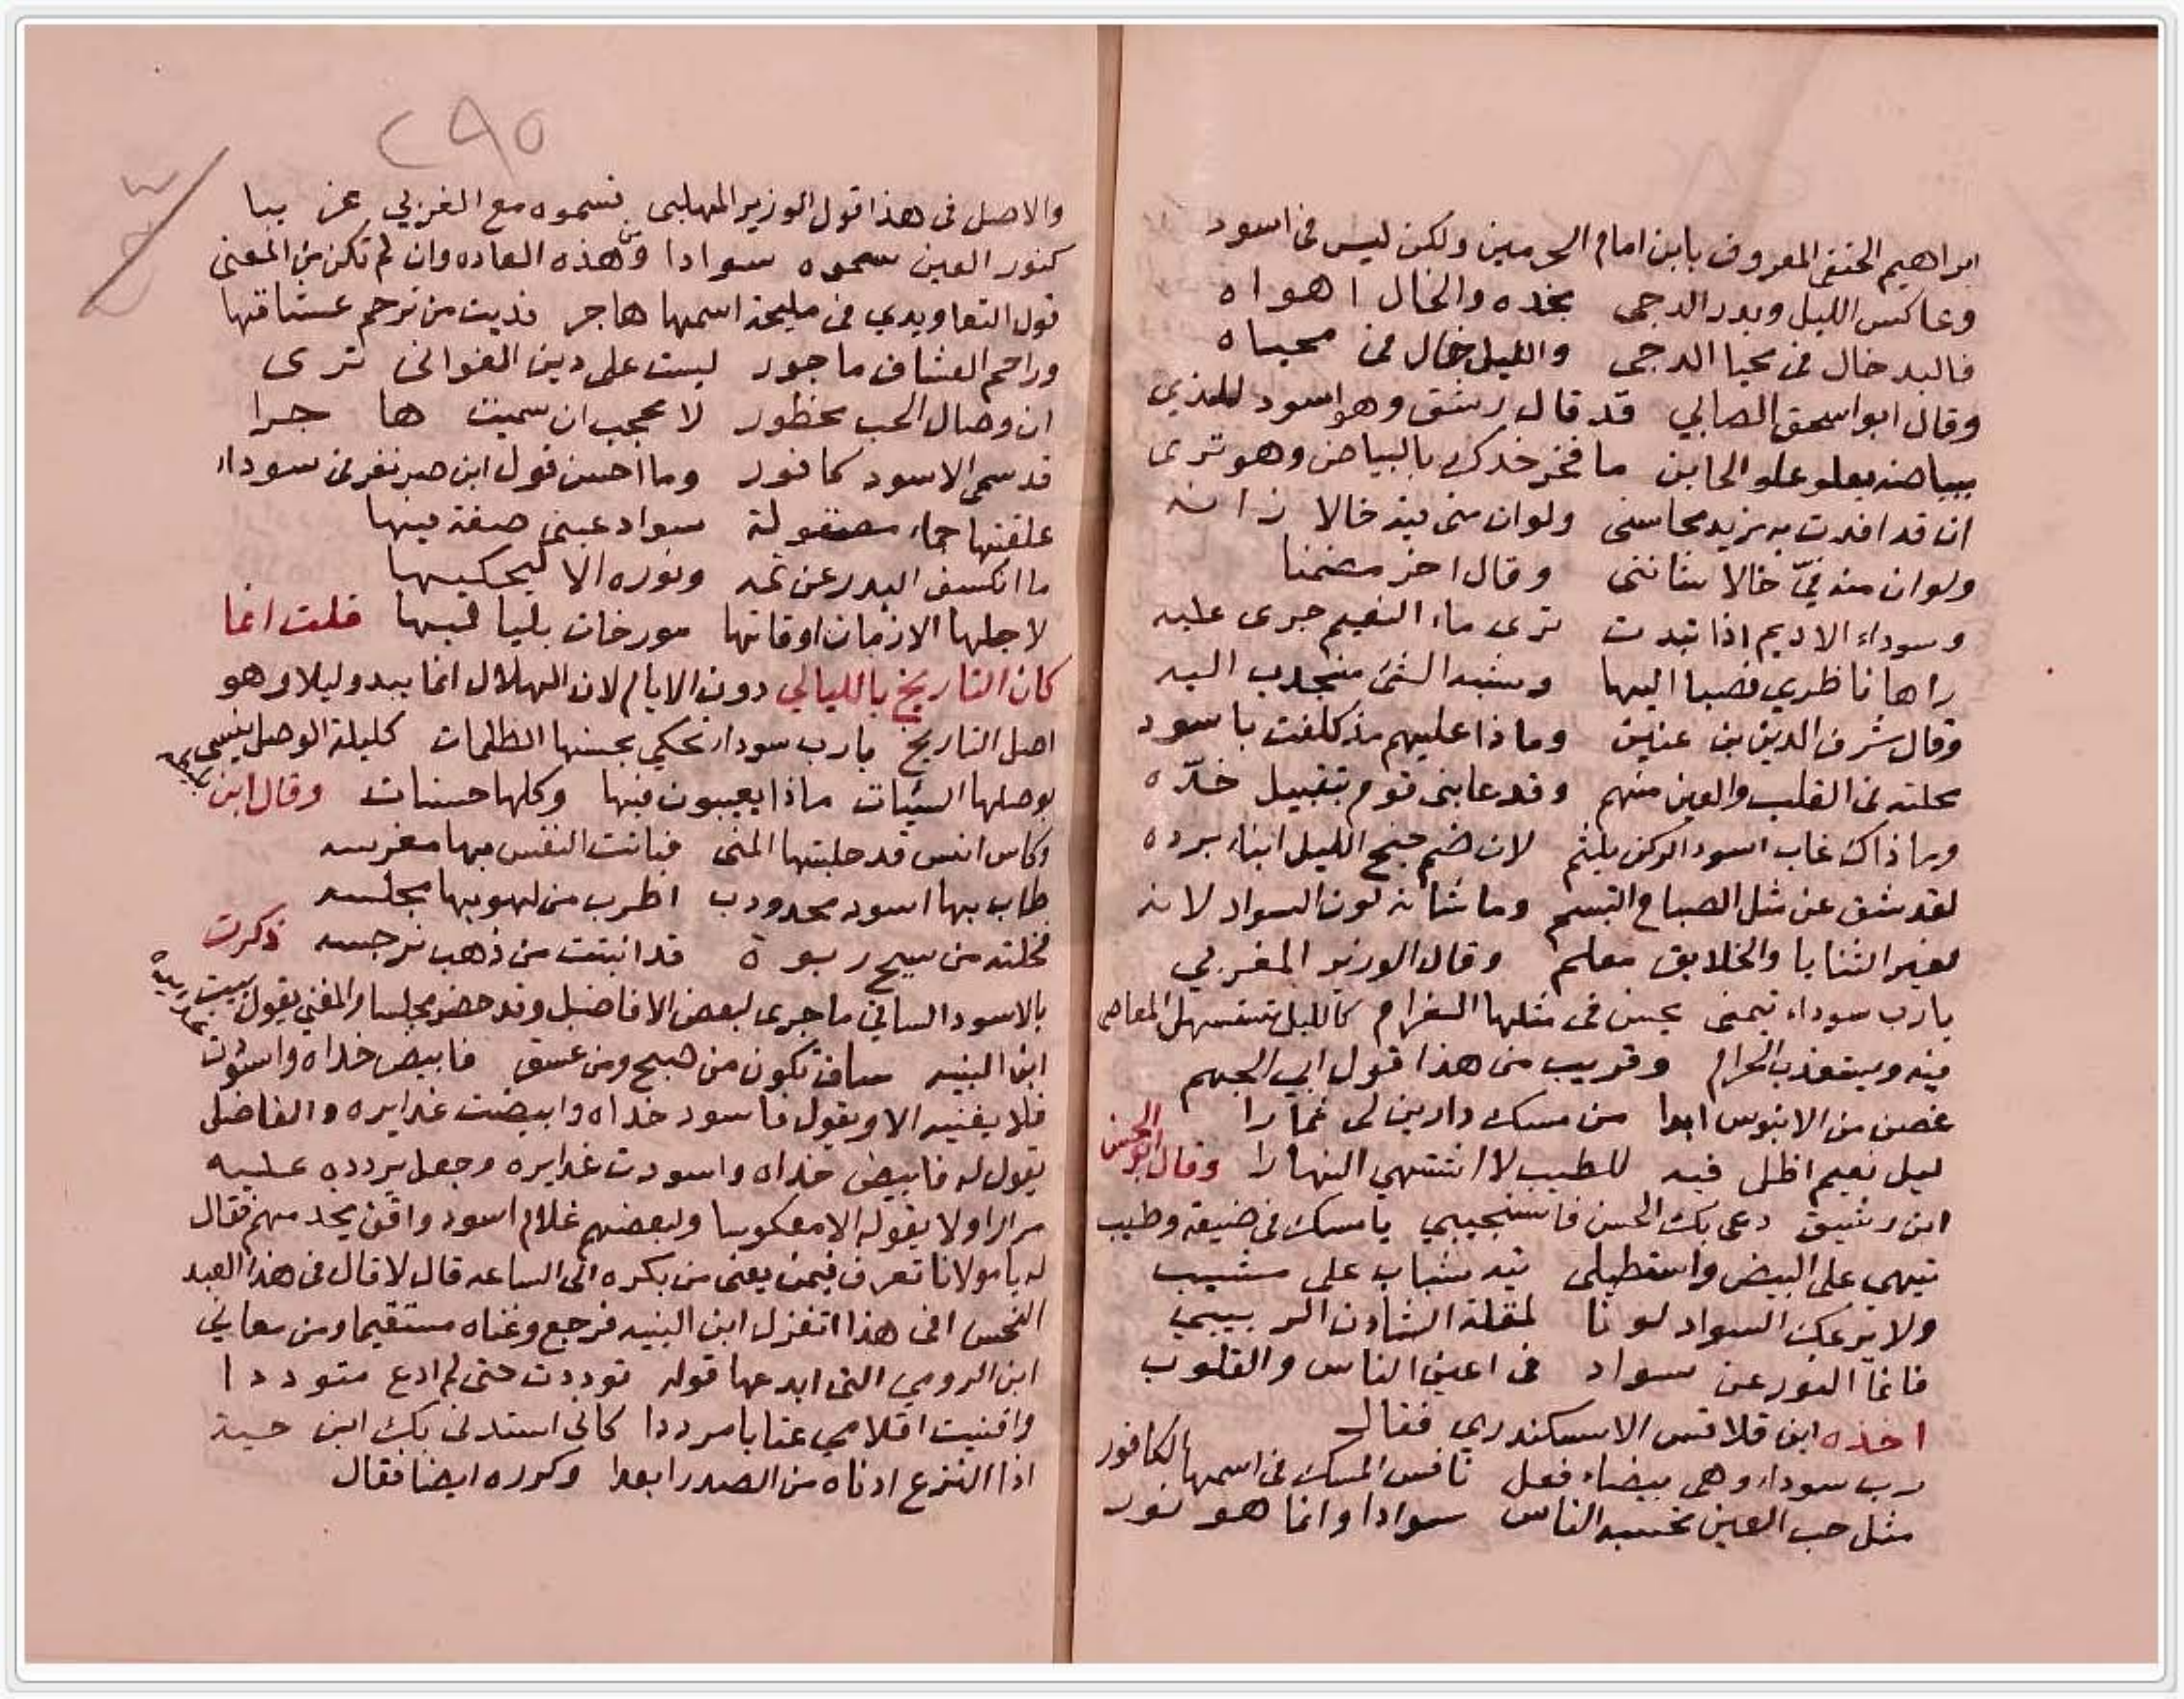 ابراهيم الحنفى المعروف بابن امام الحرمين ولكن ليس فى اسود
وعاكس الليل وبدر الدجى بخده والخال اهواه
فالبد خال فى محيا الدجى والليل خال فى محياه
وقال ابو اسحق الصابي قد قال رشق وهو اسود للذي
ببياضه يعلو علو الخاين ما فخر خدك بالبياض وهو ترى
ان قد افدت به مزيد محاسنى ولو ان منى فيه خالا زانه
ولو ان منه فيّ خالا شاننى وقال اخر مضمنا
وسوداء الاديم اذا تبدت ترى ماء النعيم جرى عليه
راها ناظري فصبا اليها وشبه الشئ منجذب اليه
وقال شرف الدين بن عنين وماذا عليهم مذ كلفت باسود
محلته فى القلب والعين منهم وقد عابنى قوم بتقبيل خدّه
وما ذاك عاب اسود الركن يلثم لان ضم جنح الليل اثناء برده
لقد شق عن مثل الصباح التبسم وما شانه لون السواد لانه
لغير الثنايا والخلايق معلم وقال الوزير المغربي
يارب سوداء تيمنى يحسن فى مثلها الغرام كالليل تستسهل المعاصى
فيه ويستعذب الحرام وقريب من هذا قول ابي الجهم
غصن من الابنوس ابدا من مسك دارين لى ثمارا
ليل نعيم اظل فيه للطيب لا اشتهي النهارا وقال ابو الحسن
ابن رشيق دعى بك الحسن فاستجيبي يا مسك فى صبغة وطيب
تيهي على البيض واستطيلى تيه شباب على مشيب
ولا يرعك السواد لونا لمقلة الشادن الربيبي
فانما النور عن سواد فى اعين الناس والقلوب
اخذه ابن قلاقس الاسكندري فقال
رب سوداء وهى بيضاء فعل نافس المسك فى اسمها الكافور
مثل حب العين تحسبه الناس سوادا وانما هو نور
٢٩٥
والاصل فى هذا قول الوزير المهلبى قسموه مع الغربي عن
كنور العين سموه سوادا ومن هذه العاده وان لم تكن من المعنى
قول التعاويدي فى مليحة اسمها هاجر فديت من ترحم عشاقها
وراحم العشاق ماجور ليست على دين الغوانى ترى
ان وصال الحب محظور لا عجب ان سميت ها جرا
قد سمى الاسود كافور وما احسن قول ابن صبر نفر فى سوداء
علقتها حماء مصقولة سواد عينى صفة فيها
ما انكسف البدر عن تمه ونوره الا ليحكيها
لاجلها الازمان اوقاتها مورخات بليا ليها قلت انما
كان التاريخ بالليالي دون الايام لان الهلال انما يبدو ليلا وهو
اصل التاريخ يارب سوداء تحكي بحسنها الظلمات كليلة الوصل ينسى
بوصلها السيئات ماذا يعيبون فيها وكلها حسنات وقال ابن
وكاس انس قد جلبتها المنى فباتت النفس بها معرسه
طاب بها اسود محدودب اطرب من لهو بها مجلسه
فخلته من سبج ربوة قد انبتت من ذهب نرجسه ذكرت
بالاسود الساقي ما جرى لبعض الافاضل وقد حضر مجلسا والمغني يقول بيت
ابن النبيه ساق تكون من صبح ومن غسق فابيض خداه واسودت
فلا يغنيه الا ويقول فاسود خداه وابيضت غدايره والفاضل
يقول له فابيض خداه واسودت غدايره وجعل يردده عليه
مرارا ولا يقوله الا معكوسا ولبعضهم غلام اسود واقف يخدمهم فقال
له يا مولانا تعرف فيمن يغنى من بكره الى الساعه قال لا قال فى هذا العبد
النحس افى هذا اتغزل ابن النبيه فرجع وغناه مستقيما ومن معاني
ابن الرومي التى ابدعها قوله توددت حتى لم ادع متوددا
وافنيت اقلامي عتابا مرددا كانى استدنى بك ابن حية
اذا النزع ادناه من الصدر ابعدا وكرره ايضا فقال